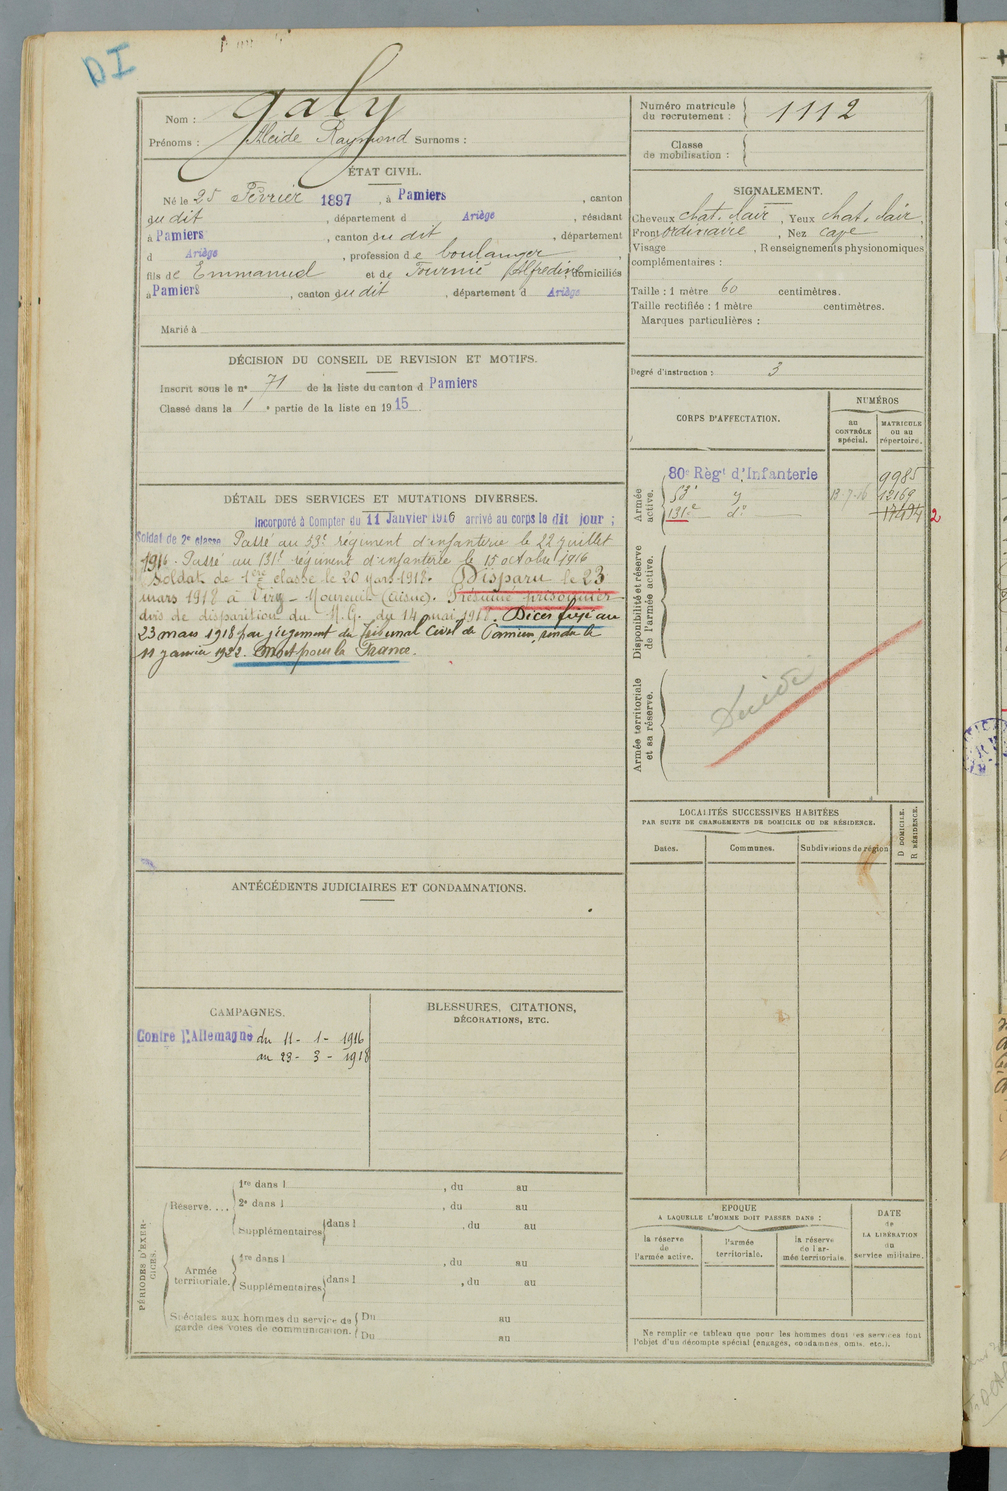 DI
Nom : Galy
Prénoms : Alcide Raymond Surnoms :
Numéro matricule
du recrutement : 1112
Classe
de mobilisation :
ÉTAT CIVIL.
Né le 25 Février 1897, à Pamiers, canton
du dit, département d Ariège, résidant
à Pamiers, canton du dit, département
d Ariège, profession de boulanger,
fils de Emmanuel et de Fournié Alfredine domiciliés
à Pamiers, canton du dit, département d Ariège
Marié à
SIGNALEMENT.
Cheveux chat. clair, Yeux chat. clair,
Front ordinaire, Nez cave,
Visage , Renseignements physionomiques
complémentaires :
Taille : 1 mètre 60 centimètres.
Taille rectifiée : 1 mètre centimètres.
Marques particulières :
Degré d'instruction : 3
DÉCISION DU CONSEIL DE REVISION ET MOTIFS.
Inscrit sous le n° 71 de la liste du canton d Pamiers
Classé dans la 1e partie de la liste en 1915.
CORPS D'AFFECTATION.
NUMÉROS
au
CONTRÔLE
spécial.
MATRICULE
ou au
répertoire.
Armée
active.
80e Régt d'Infanterie 9985
53e 13-7-16 12169
131e do 17494 2
Disponibilité et réserve
de l'armée active.
Armée territoriale
et sa réserve.
DÉTAIL DES SERVICES ET MUTATIONS DIVERSES.
Incorporé à Compter du 11 Janvier 1916 arrivé au corps le dit jour ;
Soldat de 2e classe Passé au 53e régiment d'infanterie le 22 juillet
1916. Passé au 131e régiment d'infanterie le 15 octobre 1916
Soldat de 1ère classe le 20 mars 1918. Disparu le 23
mars 1918 à Viry-Noureuil (Aisne). Présumé prisonnier
avis de disparition du M.G. du 14 mai 1918. Décès fixé au
23 mars 1918 par jugement du Tribunal Civil de Pamiers, rendu le
11 janvier 1922. Mort pour la France.
LOCALITÉS SUCCESSIVES HABITÉES
PAR SUITE DE CHANGEMENTS DE DOMICILE OU DE RÉSIDENCE.
Dates.
Communes.
Subdivisions de région
D DOMICILE.
R RÉSIDENCE.
ANTÉCÉDENTS JUDICIAIRES ET CONDAMNATIONS.
CAMPAGNES.
Contre l'Allemagne du 11 - 1 - 1916
au 23 - 3 - 1918
BLESSURES, CITATIONS,
DÉCORATIONS, ETC.
PÉRIODES D'EXERCICES.
Réserve....
1re dans l , du au
2e dans l , du au
Supplémentaires dans l , du au
Armée
territoriale.
1re dans l , du au
Supplémentaires dans l , du au
Spéciales aux hommes du service de
garde des voies de communication.
Du au
Du au
EPOQUE
A LAQUELLE L'HOMME DOIT PASSER DANS :
la réserve
de
l'armée active.
l'armée
territoriale.
la réserve
de l'armée territoriale.
DATE
de
LA LIBÉRATION
du
service militaire.
Ne remplir ce tableau que pour les hommes dont les services font
l'objet d'un décompte spécial (engagés, condamnés, omis, etc.).